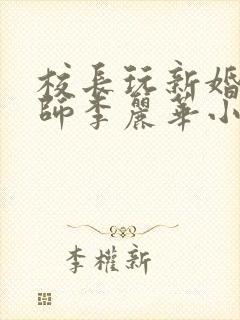 校長玩新婚
師李麗華小
李權新